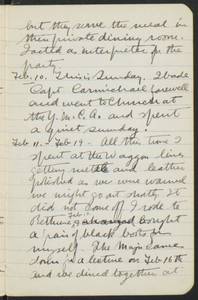 but they serve the meal in
their private dining room.
I acted as interpreter for the
party.
Feb. 10. This is Sunday. I bade
Capt. Carmichael farewell
and went to Church at
the Y.M.C.A. and spent
a quiet Sunday.
Feb 11 - Feb 19 - All this time I
spent at the Waggon lines
getting metal and leather
polished as we were warned
we might go out shortly. It
did not come off. I rode to
Bethune and bought
a pair of black boots for
myself. The Major came
down for a lecture on Feb 16th
and we dined together at